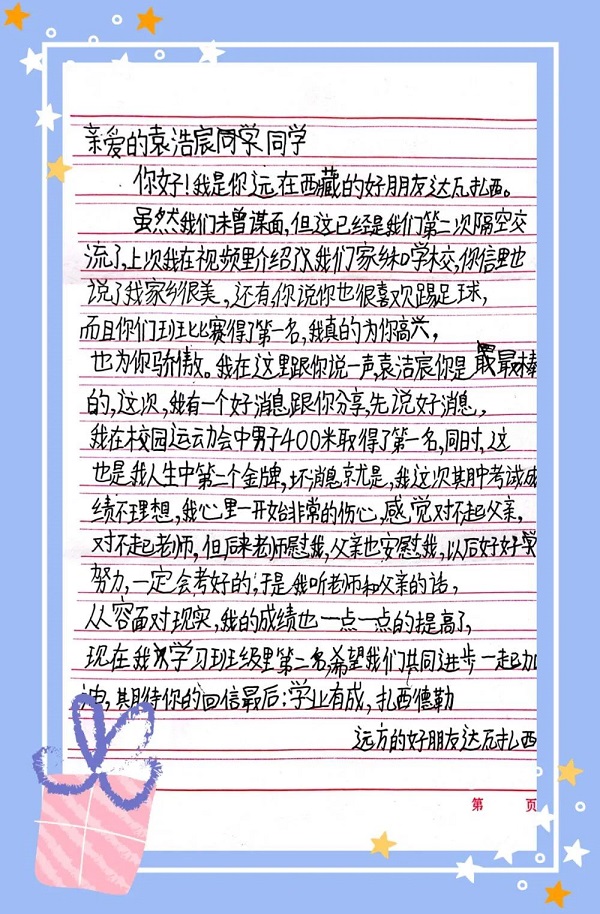 亲爱的袁浩宸同学同学
你好!我是你远在西藏的好朋友达瓦扎西。
虽然我们未曾谋面,但这已经是我们第二次隔空交
流了,上次我在视频里介绍了我们家乡和学校,你信里也
说了我家乡很美,还有,你说你也很喜欢踢足球,
而且你们班比赛得了第一名,我真的为你高兴,
也为你骄傲。我在这里跟你说一声,袁洁宸你是最最棒
的,这次,我有一个好消息跟你分享,先说好消息,
我在校园运动会中男子400米取得了第一名,同时,这
也是我人生中第二个金牌,坏消息就是,我这次其中考试成
绩不理想,我心里一开始非常的伤心,感觉对不起父亲,
对不起老师,但后来老师慰我,父亲也安慰我,以后好好学
努力,一定会考好的,于是我听老师和父亲的话,
从容面对现实,我的成绩也一点一点的提高了,
现在我学习班级里第二名,希望我们共同进步一起加
油,其期待你的回信最后:学业有成,扎西德勒
远方的好朋友达瓦扎西
第 页